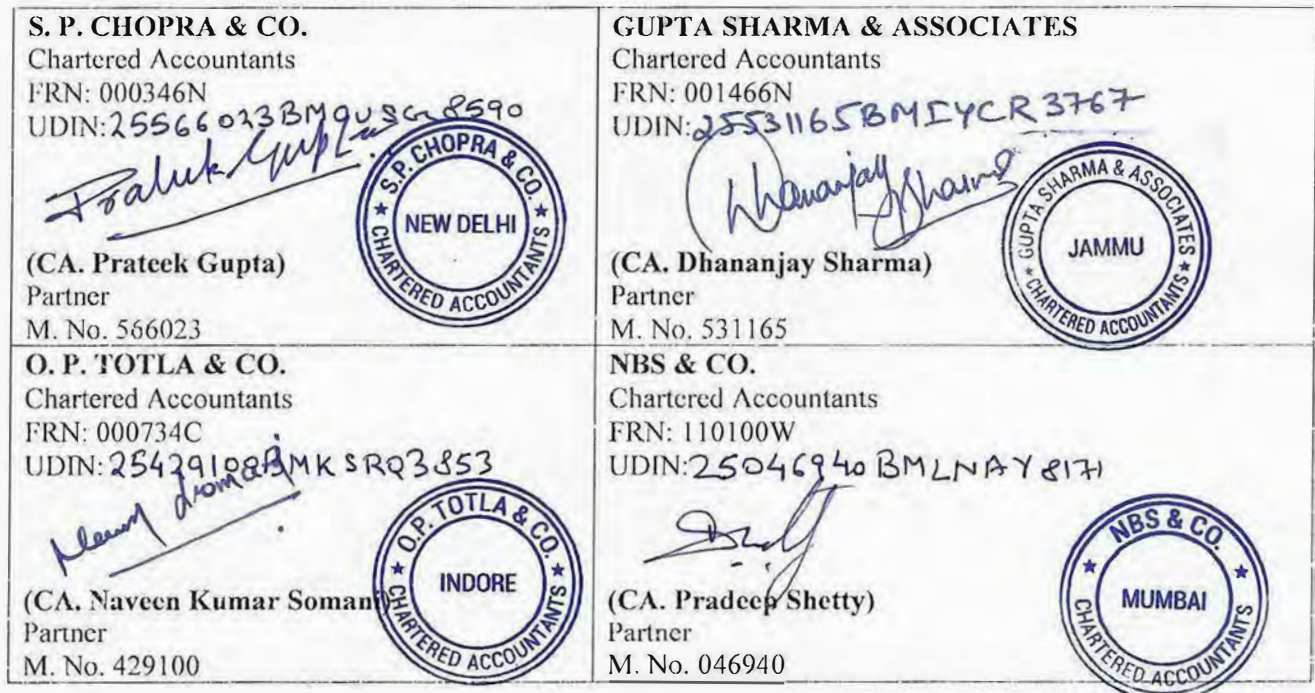 S. P. CHOPRA & CO.
Chartered Accountants
FRN: 000346N
UDIN: 25566023BMQUSG8590
Prateek Gupta
S.P. CHOPRA & CO.
NEW DELHI
CHARTERED ACCOUNTANTS
(CA. Prateek Gupta)
Partner
M. No. 566023
GUPTA SHARMA & ASSOCIATES
Chartered Accountants
FRN: 001466N
UDIN: 25531165BMIYCR3767
Dhananjay Sharma
GUPTA SHARMA & ASSOCIATES
JAMMU
CHARTERED ACCOUNTANTS
(CA. Dhananjay Sharma)
Partner
M. No. 531165
O. P. TOTLA & CO.
Chartered Accountants
FRN: 000734C
UDIN: 25429100BMKSRQ3853
O.P. TOTLA & CO.
INDORE
CHARTERED ACCOUNTANTS
(CA. Naveen Kumar Somani)
Partner
M. No. 429100
NBS & CO.
Chartered Accountants
FRN: 110100W
UDIN: 25046940BMLNAY8171
NBS & CO.
MUMBAI
CHARTERED ACCOUNTANTS
(CA. Pradeep Shetty)
Partner
M. No. 046940